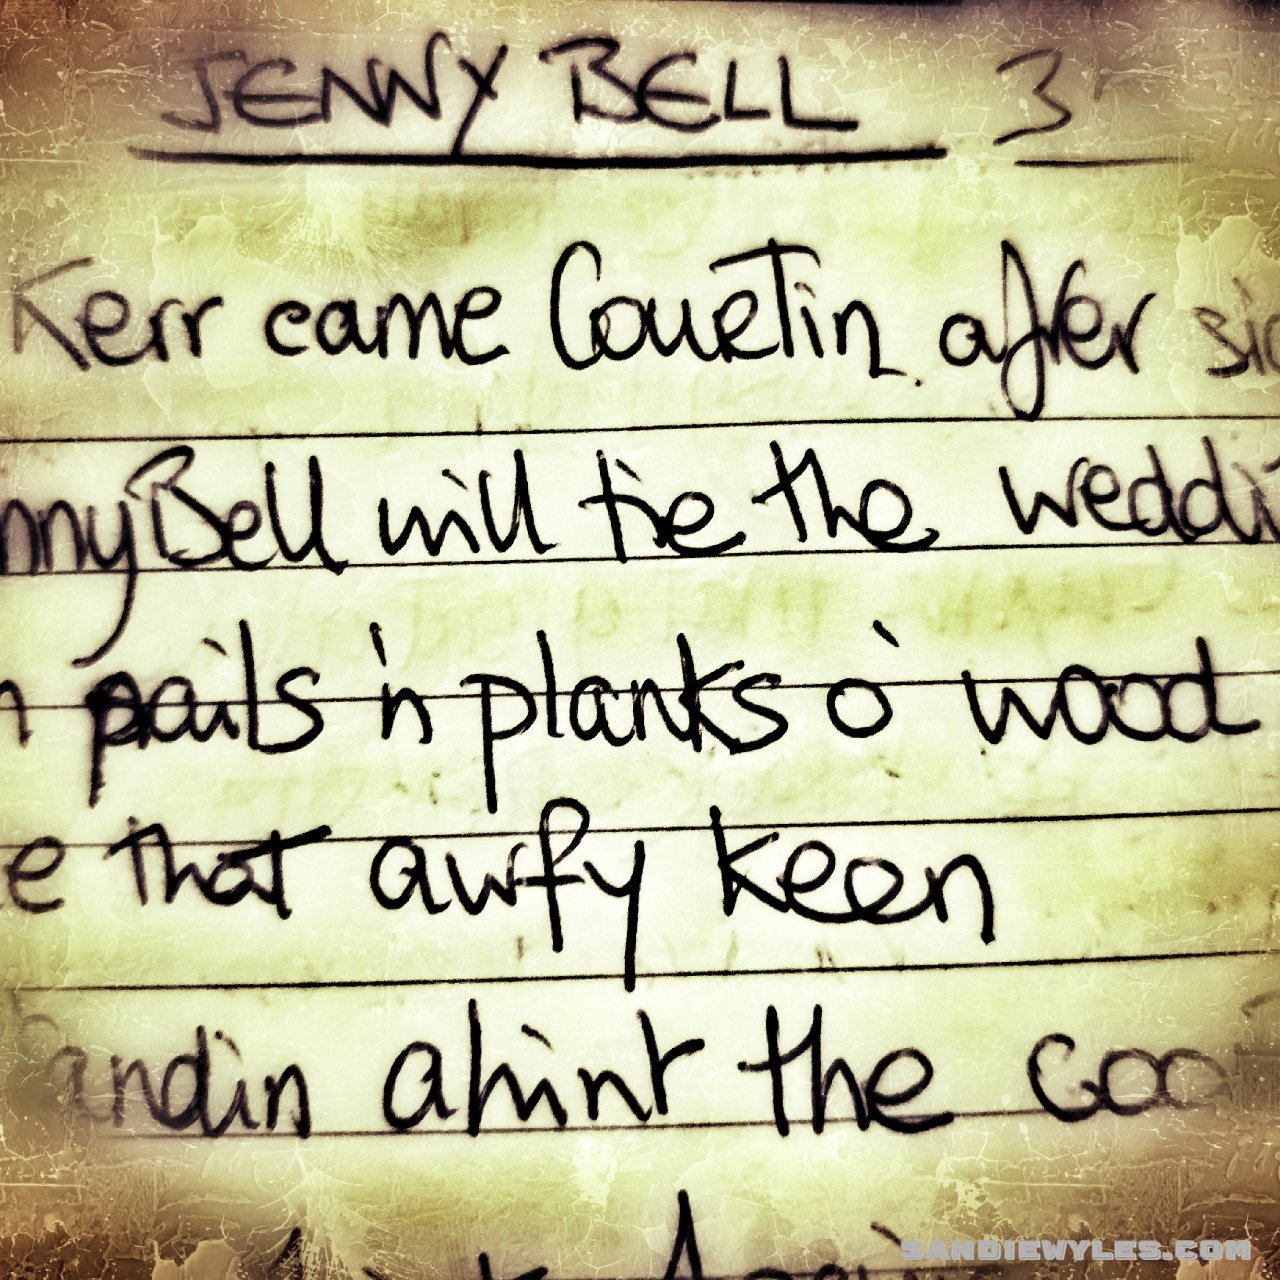 JENNY BELL 3
Kerr came Courtin after
Bell will tie the
pails 'n planks o' wood
that awfy keen
ahint the
SANDIEWYLES.COM